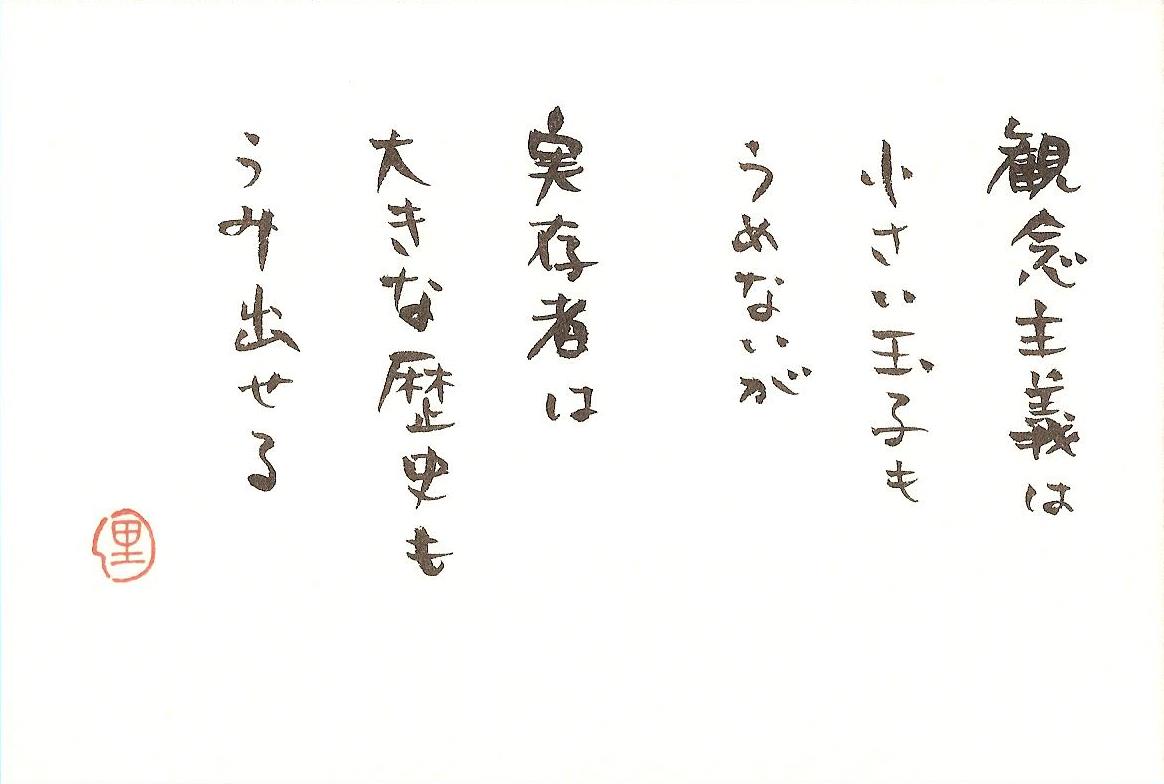 観念主義は
小さい玉子も
うめないが
実存者は
大きな歴史も
うみ出せる
里